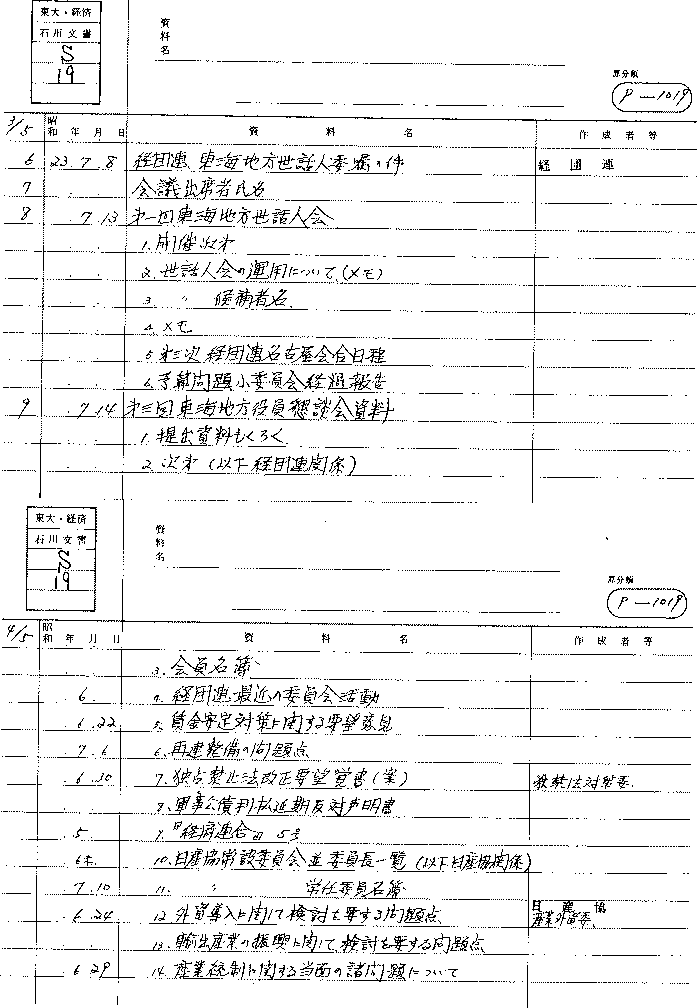 東大・経済
石川文書
S
19
資料名
原分類
P-1019
3/5
昭和 年 月 日 資料名 作成者等
6 23. 7. 8 経団連、東海地方世話人委嘱の件 経団連
7 会議出席者氏名
8 . 7. 13 第一回東海地方世話人会
1. 開催次第
2. 世話人会の運用について(メモ)
3. 〃 候補者名
4. メモ
5. 第三次経団連名古屋会合日程
6. 予算問題小委員会経過報告
9 . 7. 14 第三回東海地方役員懇談会資料
1. 提出資料もくろく
2. 次第(以下経団連関係)
東大・経済
石川文書
S
19
資料名
原分類
P-1019
4/5
昭和 年 月 日 資料名 作成者等
3. 会員名簿
6. 4. 経団連最近の委員会活動
6. 22 5. 賃金安定対策に関する要望意見
7. 6 6. 再建整備の問題点
6. 30 7. 独占禁止法改正要望覚書(業) 独禁法対策委.
8. 軍事公債利払延期反対声明書
5. 9. 『経済連合』 5号
6末. 10. 日産協常設委員会並委員長一覧(以下日産協関係)
7. 10 11. 〃 常任委員名簿
6. 24 12. 外資導入に関して検討を要する問題点 日産協 産業外資委.
13. 輸出産業の振興に関して検討を要する問題点
6. 29 14. 産業統制に関する当面の諸問題について